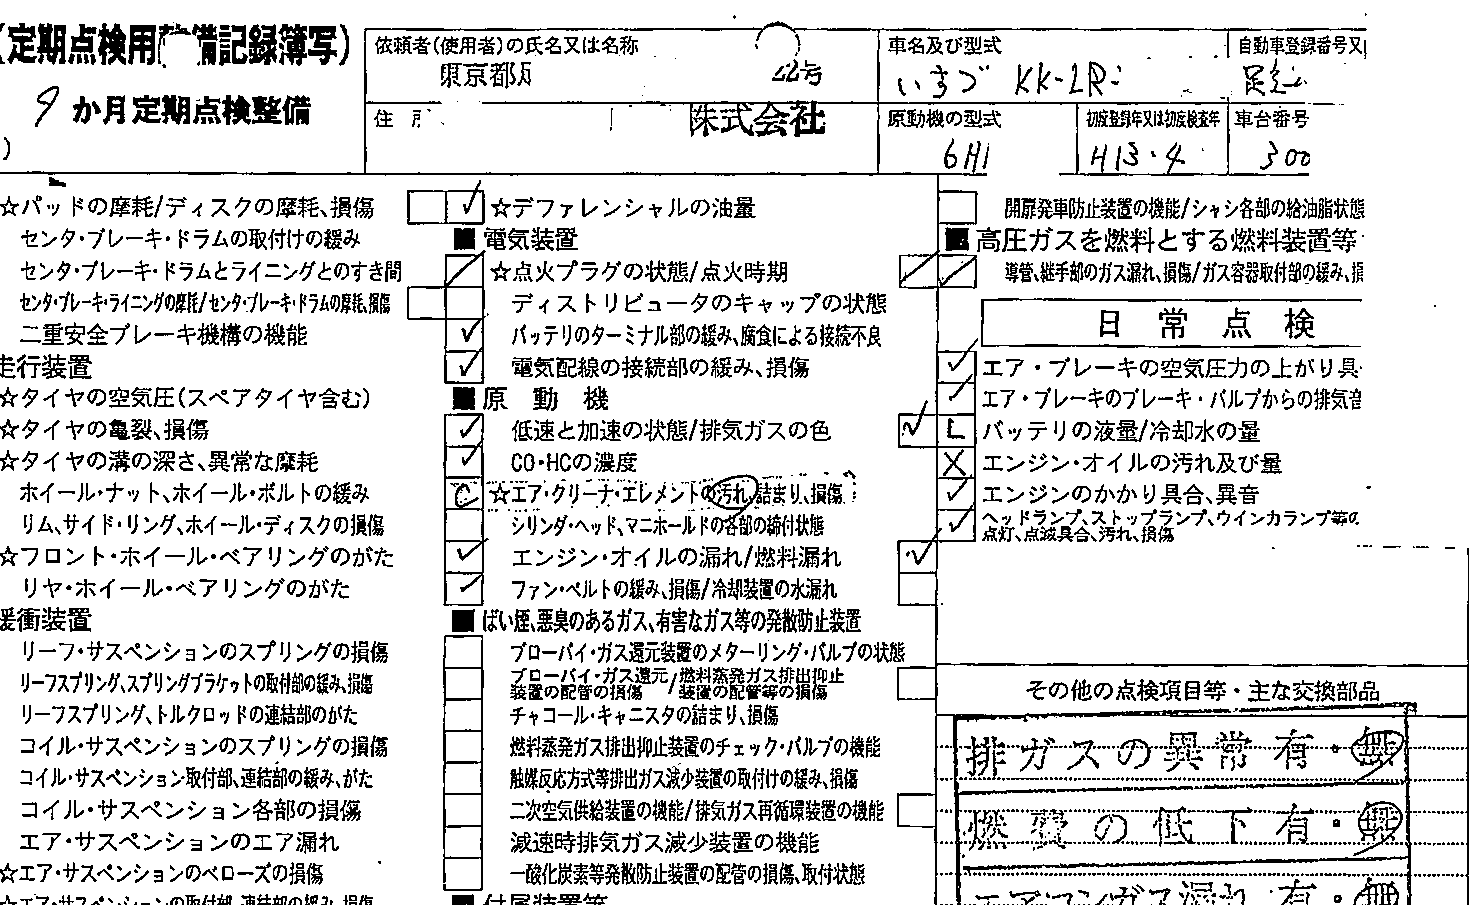 (定期点検用整備記録簿写)
9 か月定期点検整備
)
依頼者(使用者)の氏名又は名称
東京都
22号
住所
株式会社
車名及び型式
いすゞ KK-LR
自動車登録番号又
足立
原動機の型式
6H1
初度登録年又は初度検査年
H13・4
車台番号
300
☆パッドの摩耗/ディスクの摩耗、損傷
センタ・ブレーキ・ドラムの取付けの緩み
センタ・ブレーキ・ドラムとライニングとのすき間
センタ・ブレーキ・ライニングの摩耗/センタ・ブレーキ・ドラムの摩耗、損傷
二重安全ブレーキ機構の機能
走行装置
☆タイヤの空気圧(スペアタイヤ含む)
☆タイヤの亀裂、損傷
☆タイヤの溝の深さ、異常な摩耗
ホイール・ナット、ホイール・ボルトの緩み
リム、サイド・リング、ホイール・ディスクの損傷
☆フロント・ホイール・ベアリングのがた
リヤ・ホイール・ベアリングのがた
緩衝装置
リーフ・サスペンションのスプリングの損傷
リーフスプリング、スプリングブラケットの取付部の緩み、損傷
リーフスプリング、トルクロッドの連結部のがた
コイル・サスペンションのスプリングの損傷
コイル・サスペンション取付部、連結部の緩み、がた
コイル・サスペンション各部の損傷
エア・サスペンションのエア漏れ
☆エア・サスペンションのベローズの損傷
☆エア・サスペンションの取付部、連結部の緩み、損傷
✓ ☆デファレンシャルの油量
■ 電気装置
☆点火プラグの状態/点火時期
ディストリビュータのキャップの状態
✓ バッテリのターミナル部の緩み、腐食による接続不良
✓ 電気配線の接続部の緩み、損傷
■ 原 動 機
✓ 低速と加速の状態/排気ガスの色 ✓
✓ CO・HCの濃度
C ☆エア・クリーナ・エレメントの汚れ、詰まり、損傷
シリンダ・ヘッド、マニホールドの各部の締付状態
✓ エンジン・オイルの漏れ/燃料漏れ ✓
✓ ファン・ベルトの緩み、損傷/冷却装置の水漏れ
■ ばい煙、悪臭のあるガス、有害なガス等の発散防止装置
ブローバイ・ガス還元装置のメターリング・バルブの状態
ブローバイ・ガス還元装置の配管の損傷/燃料蒸発ガス排出抑止装置の配管等の損傷
チャコール・キャニスタの詰まり、損傷
燃料蒸発ガス排出抑止装置のチェック・バルブの機能
触媒反応方式等排出ガス減少装置の取付けの緩み、損傷
二次空気供給装置の機能/排気ガス再循環装置の機能
減速時排気ガス減少装置の機能
一酸化炭素等発散防止装置の配管の損傷、取付状態
■ 付属装置等
開扉発車防止装置の機能/シャシ各部の給油脂状態
■ 高圧ガスを燃料とする燃料装置等
導管、継手部のガス漏れ、損傷/ガス容器取付部の緩み、損
日 常 点 検
✓ エア・ブレーキの空気圧力の上がり具
✓ エア・ブレーキのブレーキ・バルブからの排気音
L バッテリの液量/冷却水の量
X エンジン・オイルの汚れ及び量
✓ エンジンのかかり具合、異音
✓ ヘッドランプ、ストップランプ、ウインカランプ等の
点灯、点滅具合、汚れ、損傷
その他の点検項目等・主な交換部品
排ガスの異常 有・無
燃費の低下 有・無
エアコンガス漏れ 有・無